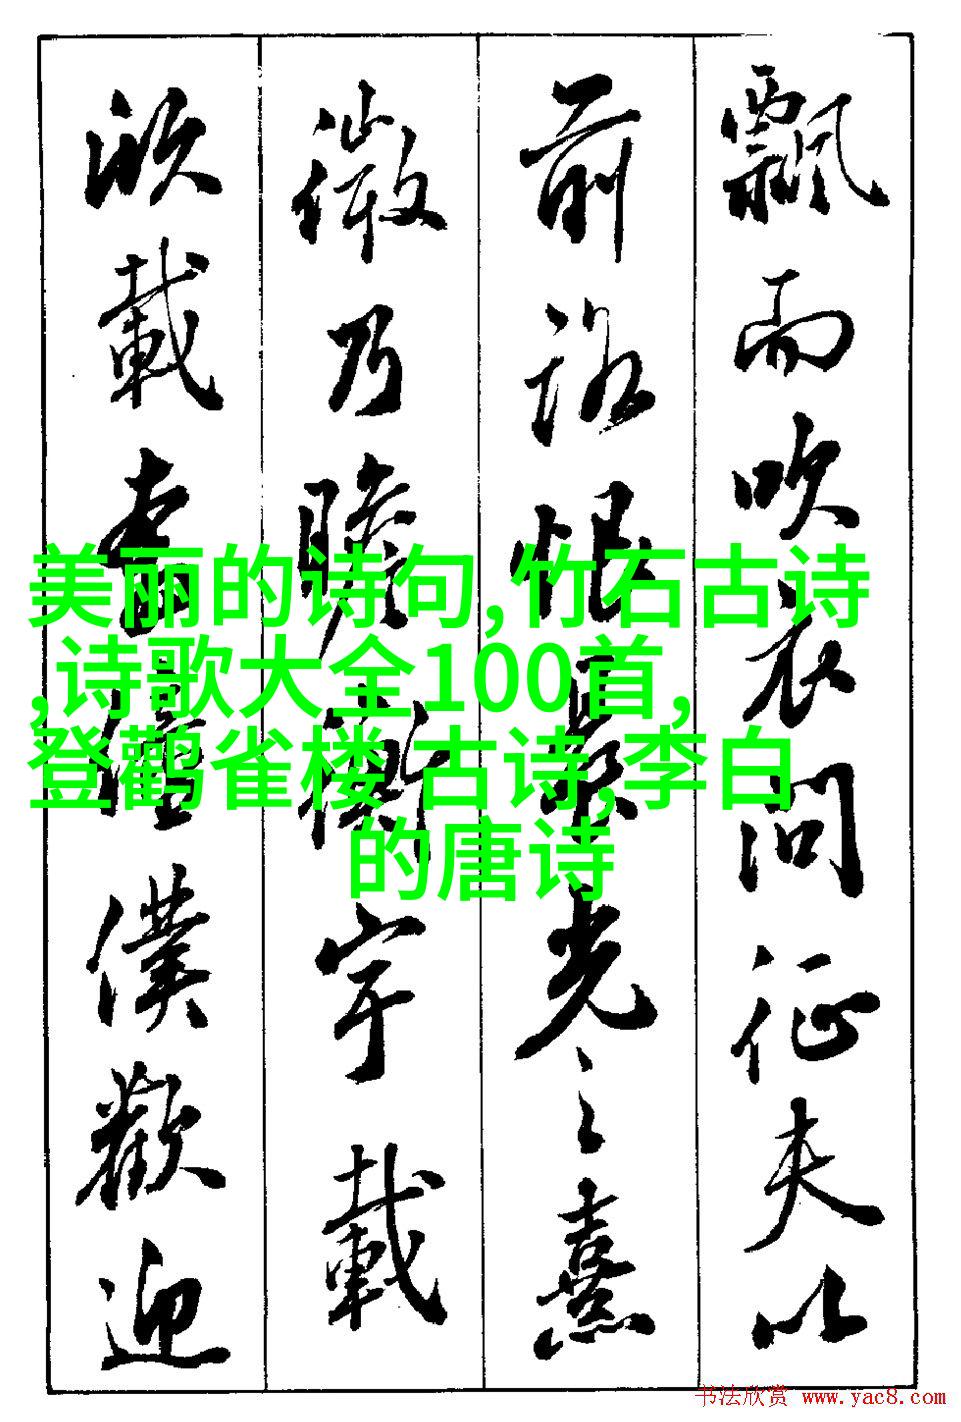 飘而吹衣问征夫以
前路恨晨光之熹
微乃瞻衡宇载
欣载奔僮仆欢迎
美丽的诗句,竹石古诗
,诗歌大全100首,
登鹳雀楼 古诗,李白
的唐诗
书法欣赏 www.yac8.com